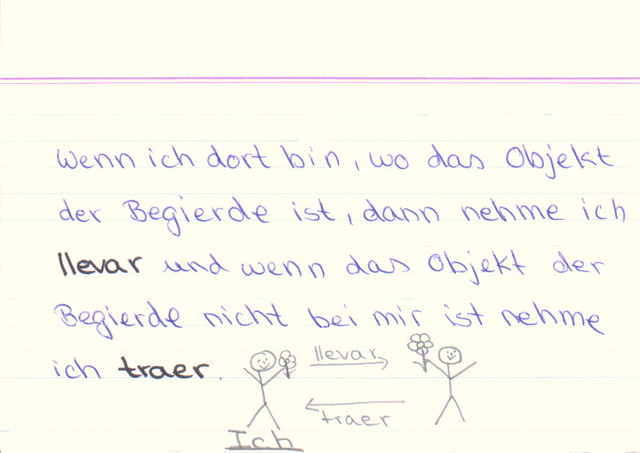 Wenn ich dort bin, wo das Objekt
der Begierde ist, dann nehme ich
llevar und wenn das Objekt der
Begierde nicht bei mir ist nehme
ich traer.
llevar
traer
Ich